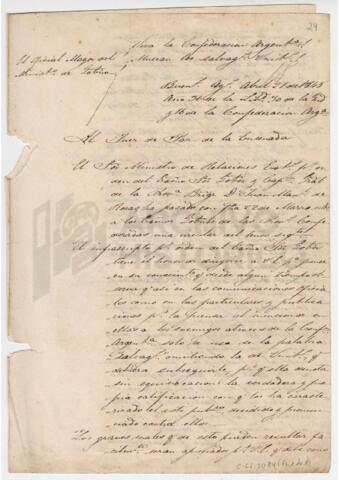 24
Viva la Confederacion Argentª!
El Oficial Mayor del Mueran los Salvagˢ Unitˢ!
Ministº de Gobno
Buenˢ Ayˢ Abril 21 de 1843
Año 34 de la Libᵈ 28 de la Ind
y 14 de la Confederacion Argª
Al Juez de Paz de la Ensenada
El Sor Ministro de Relaciones Extˢ pr or
den del Exmo Sor Gobor y Capn Gral
de la Provª Brigr D. Juan Manl de
Rosas ha pasado con fha de Marzo
a los Exmos Gobnos de las Provˢ Confe
deradas una circular del tenor sigte
El infrascripto pr orden del Exmo Sor Gobor
tiene el honor de dirigirse a V.E. pa poner
en su conocimto q desde algun tiempo ob
serva q asi en las comunicaciones oficia
les como en las particulares y publica
ciones pr la prensa al mencionar en
ellas a los enemigos de la Confn
Argentª solo se usa de la palabra
Salvagˢ omitiendo la de Unitˢ q
debiera subseguirle, pr q ella denota
sin equivocacion la verdadera y pro
pia calificacion con q los ha caracte
rizado el voto pubco decidido y pronun
ciado contra ellos.
Los graves males q de esto pueden resultar fa
cilmte seran apreciados pr V.E. y debe como